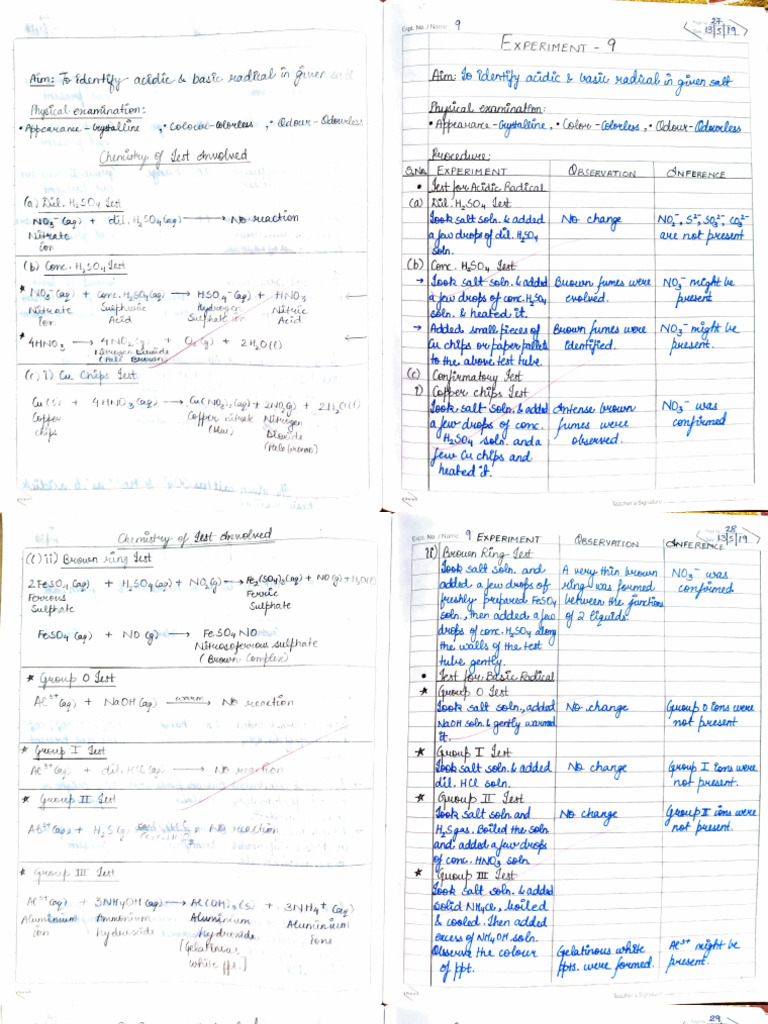 Aim: To identify acidic & basic radical in given salt
Physical examination:
• Appearance - Crystalline, • Colour - Colorless, • Odour - Odourless
Chemistry of Test Involved
(a) Dil. H₂SO₄ Test
NO₃⁻(aq) + dil. H₂SO₄(aq) → No reaction
Nitrate
Ion
(b) Conc. H₂SO₄ Test
* NO₃⁻(aq) + conc. H₂SO₄(aq) → HSO₄⁻(aq) + HNO₃
Nitrate Sulphuric Hydrogen Nitric
Ion Acid Sulphate ion Acid
* 4HNO₃ → 4NO₂(g) + O₂(g) + 2H₂O(l)
Nitrogen Dioxide
(Pale Brown)
(c) i) Cu Chips Test
Cu(s) + 4HNO₃(aq) → Cu(NO₃)₂(aq) + 2NO₂(g) + 2H₂O(l)
Copper Copper nitrate Nitrogen
chips (blue) Dioxide
(Pale brown)
Expt. No. / Name 9
27
13/5/19
EXPERIMENT - 9
Aim: To identify acidic & basic radical in given salt
Physical examination:
• Appearance - Crystalline, • Color - Colorless, • Odour - Odourless
Procedure:
S.No. EXPERIMENT OBSERVATION INFERENCE
• Test for Acidic Radical
(a) Dil. H₂SO₄ Test
Took salt soln. & added No change NO₂⁻, S²⁻, SO₃²⁻, CO₃²⁻
a few drops of dil. H₂SO₄ are not present
soln.
(b) Conc. H₂SO₄ Test
→ Took salt soln. & added Brown fumes were NO₃⁻ might be
a few drops of conc. H₂SO₄ evolved. present
soln. & heated it.
→ Added small pieces of Brown fumes were NO₃⁻ might be
Cu chips or paper pallets identified. present.
to the above test tube.
(c) Confirmatory Test
i) Copper chips Test
Took salt soln. & added Intense brown NO₃⁻ was
a few drops of conc. fumes were confirmed
H₂SO₄ soln. and a observed.
few Cu chips and
heated it.
Teacher's Signature
Chemistry of Test Involved
(c) ii) Brown ring Test
2FeSO₄(aq) + H₂SO₄(aq) + NO₂(g) → Fe₂(SO₄)₃(aq) + NO(g) + H₂O(l)
Ferrous Ferric
Sulphate Sulphate
FeSO₄(aq) + NO(g) → FeSO₄NO
Nitrosoferrous sulphate
(Brown Complex)
* Group 0 Test
Al³⁺(aq) + NaOH(aq) warm → No reaction
* Group I Test
Al³⁺(aq) + dil. HCl(aq) → No reaction
* Group II Test
Al³⁺(aq) + H₂S(g) → No reaction
* Group III Test
Al³⁺(aq) + 3NH₄OH(aq) → Al(OH)₃(s) + 3NH₄⁺(aq)
Aluminium Ammonium Aluminium Aluminium
ion hydroxide hydroxide ions
[Gelatinous
white ppt.]
Expt. No. / Name 9 EXPERIMENT OBSERVATION INFERENCE
28
13/5/19
ii) Brown Ring Test
Took salt soln. and A very thin brown NO₃⁻ was
added a few drops of ring was formed confirmed
freshly prepared FeSO₄ between the junction
soln., then added a few of 2 liquids.
drops of conc. H₂SO₄ along
the walls of the test
tube gently.
• Test for Basic Radical
* Group 0 Test
Took salt soln., added No change Group 0 ions were
NaOH soln. & gently warmed not present
it.
* Group I Test
Took salt soln. & added No change Group I ions were
dil. HCl soln. not present.
* Group II Test
Took salt soln. and No change Group II ions were
H₂S gas. Boiled the soln. not present.
and added a few drops
of conc. HNO₃ soln
* Group III Test
Took salt soln. & added
solid NH₄Cl, boiled
& cooled. Then added
excess of NH₄OH soln.
Observe the colour Gelatinous white Al³⁺ might be
of ppt. ppts. were formed. present.
Teacher's Signature
29